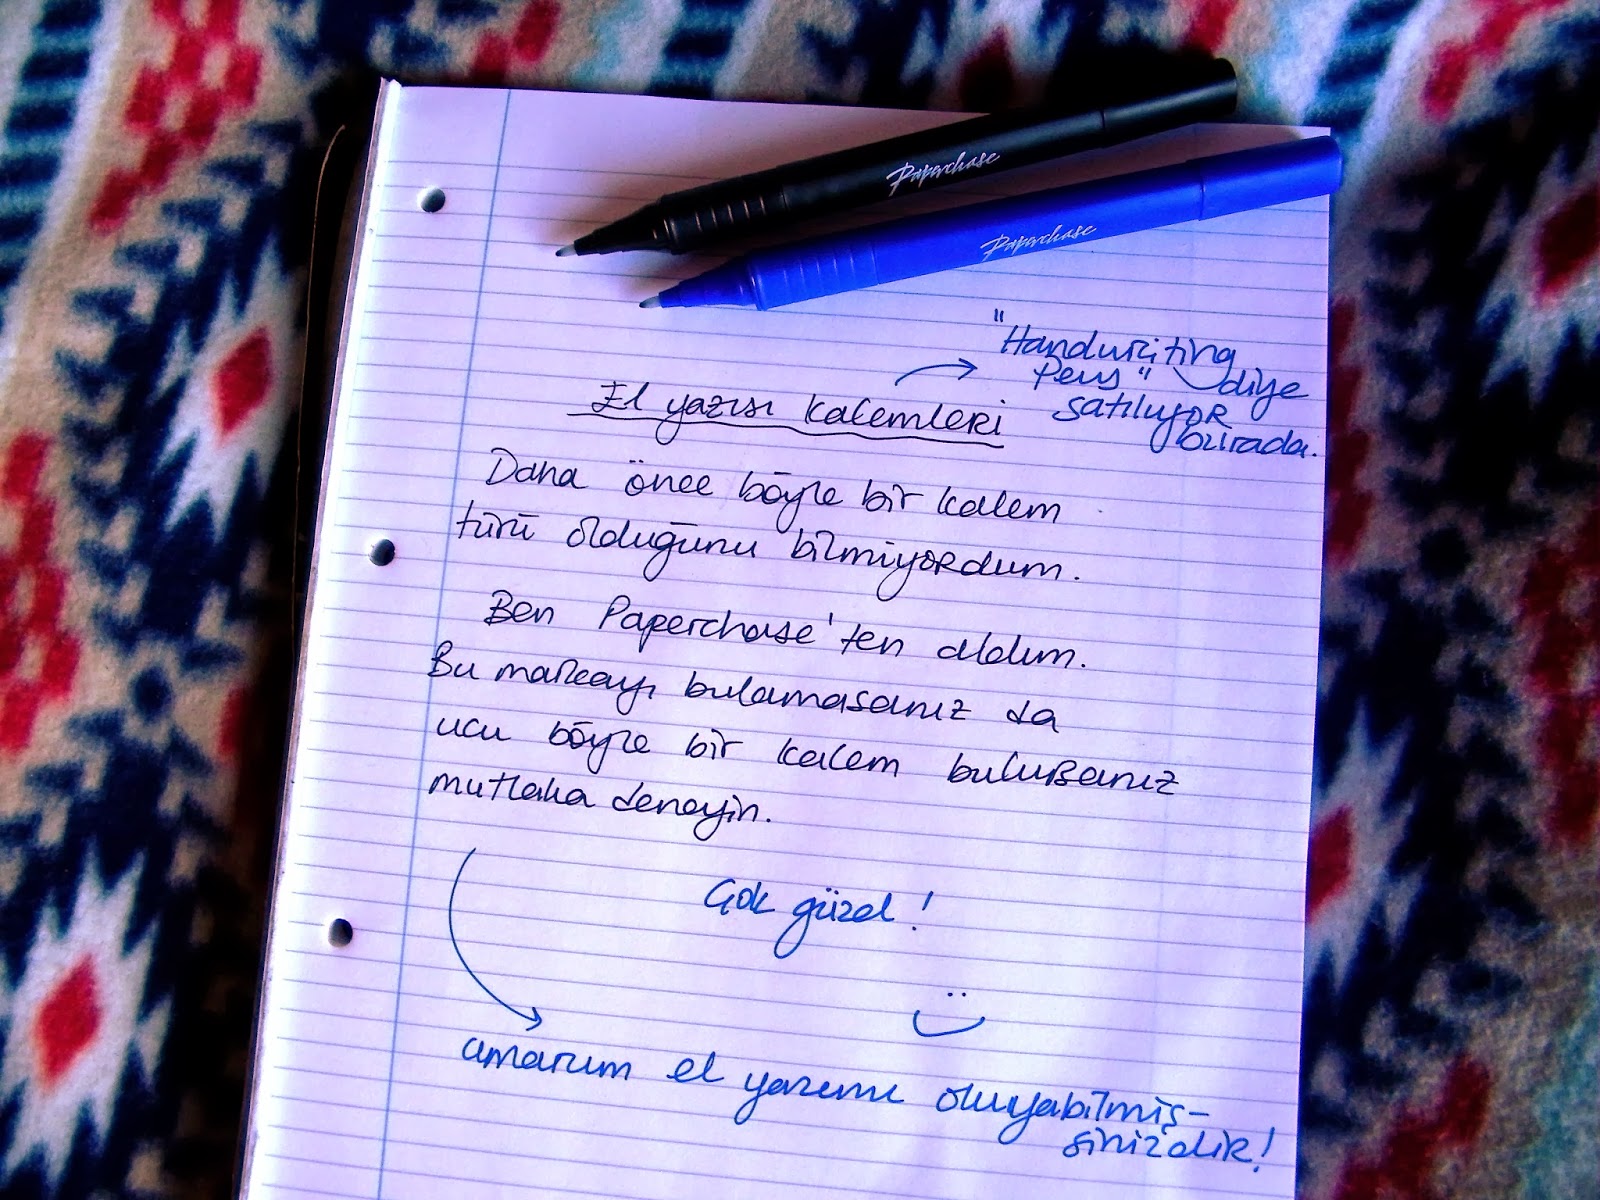 Paperchase
Paperchase
"Handwriting
Pens" diye
satılıyor
burada.
El yazısı kalemleri
Daha önce böyle bir kalem
türü olduğunu bilmiyordum.
Ben Paperchase'ten aldım.
Bu markayı bulamasanız da
ucu böyle bir kalem bulursanız
mutlaka deneyin.
Çok güzel!
umarım el yazımı okuyabilmiş-
sinizdir!